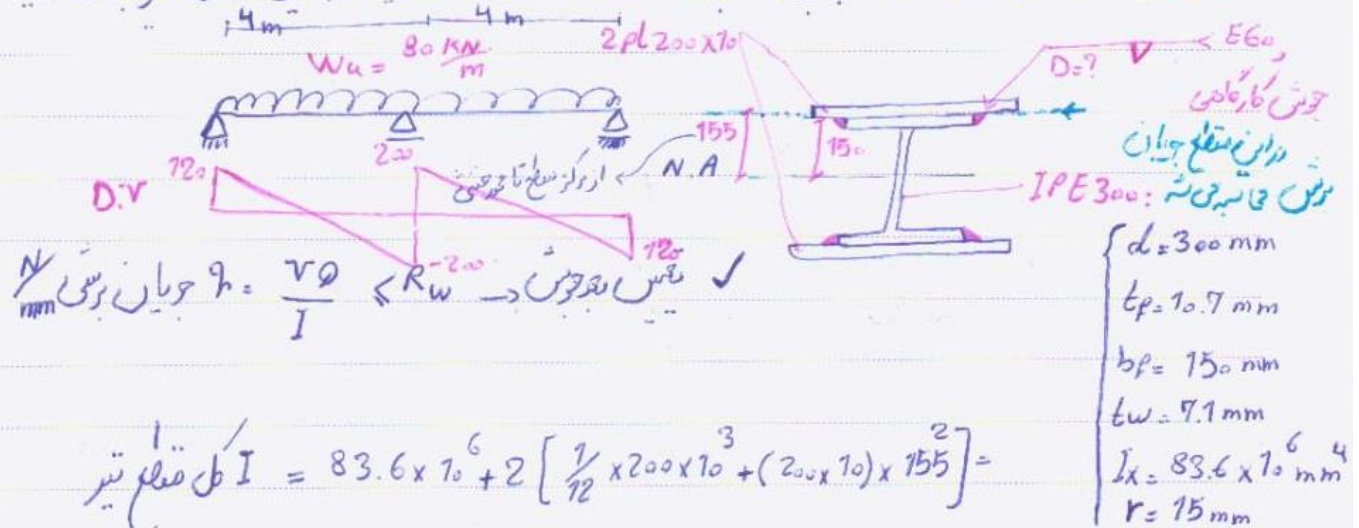 4m 4m
Wu = 80 KN/m
2pl 200x10
D=? V E60
جوش کارگاهی
در این مقطع جریان
برش محاسبه می شه
155 150
N.A ← از مرکز سطح تا محور خنثی
IPE 300:
D.V 120 200 -200 120
N/mm جریان برشی q = VQ/I ≤ Rw → تعیین بعد جوش ✓
d = 300 mm
tf = 10.7 mm
bf = 150 mm
tw = 7.1 mm
Ix = 83.6 x 10^6 mm^4
r = 15 mm
I کل مقطع تیر = 83.6 x 10^6 + 2 [ 1/12 x 200 x 10^3 + (200 x 10) x 155^2 ] =